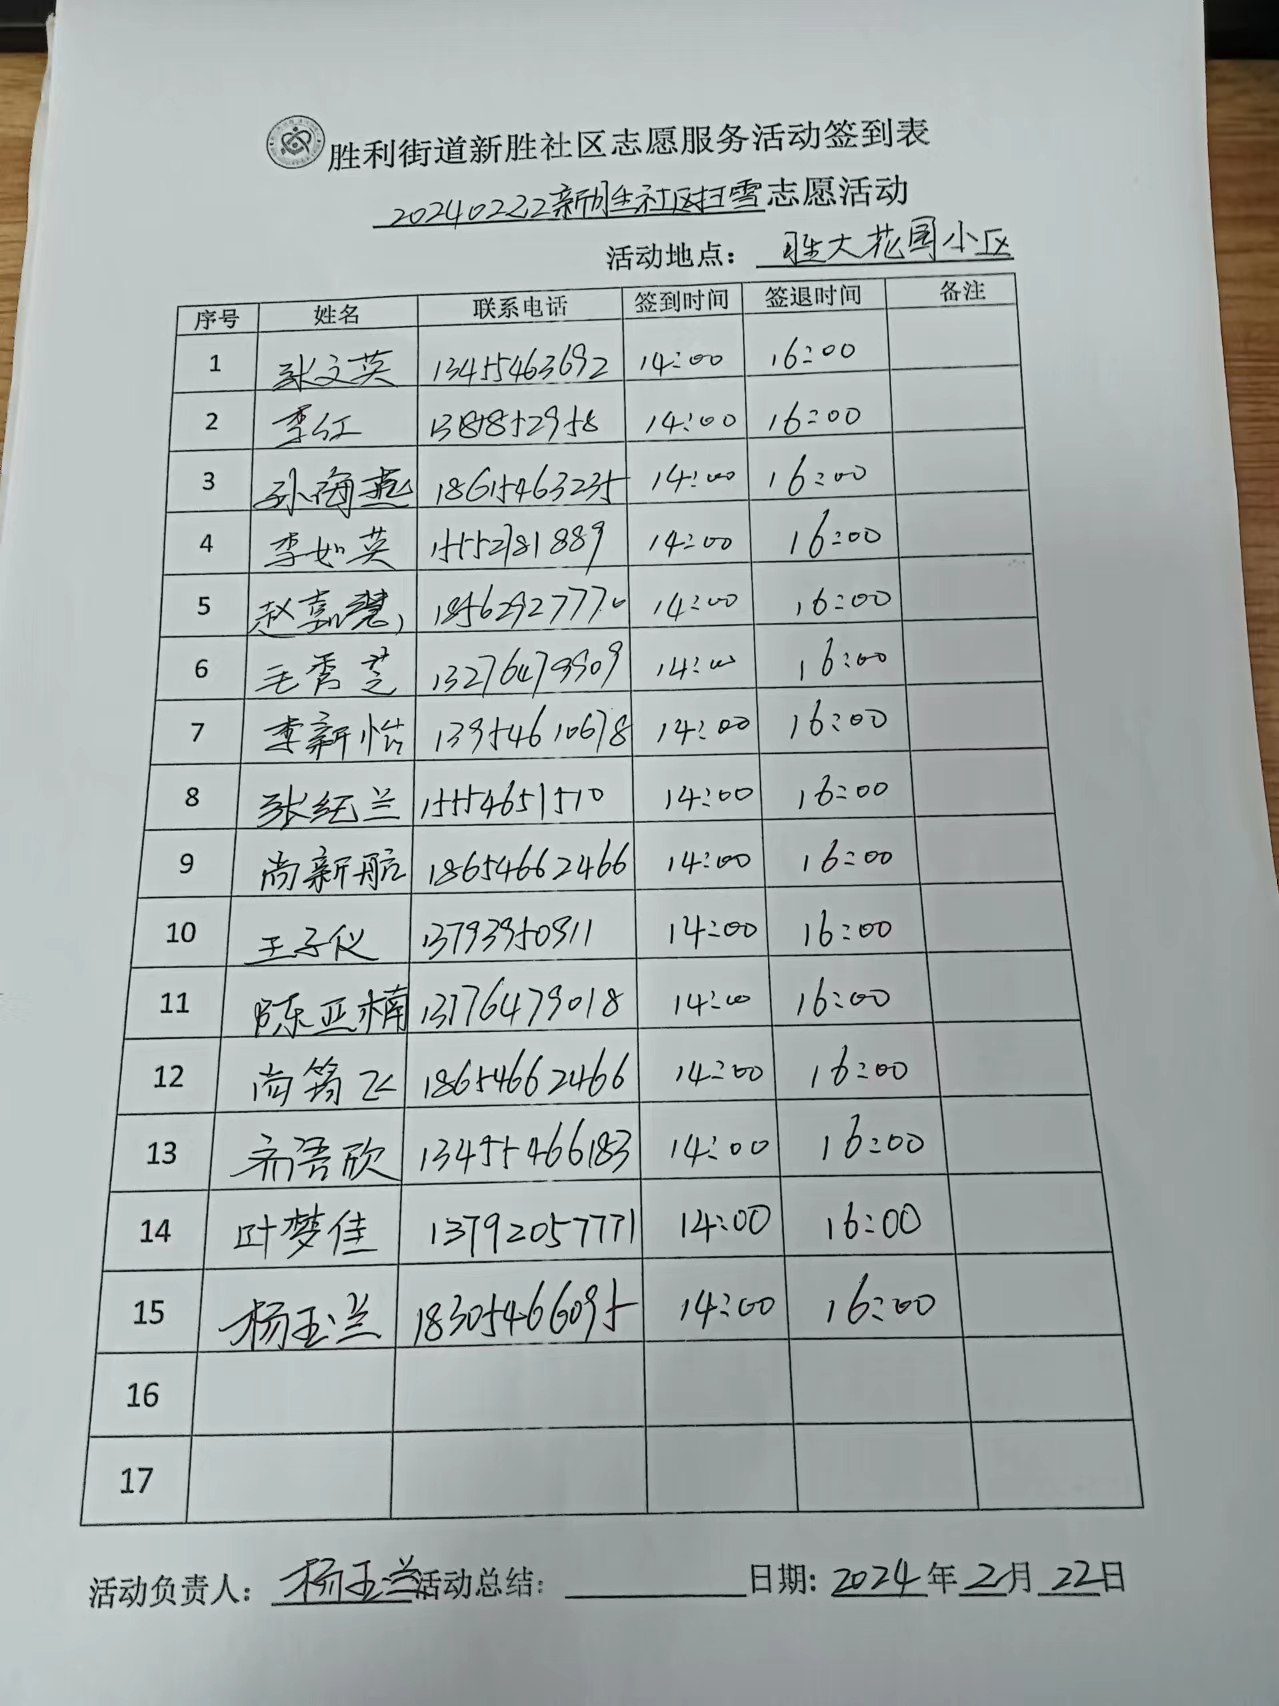 胜利街道新胜社区志愿服务活动签到表
20240222新胜社区扫雪志愿活动
活动地点：胜大花园小区
序号 姓名 联系电话 签到时间 签退时间 备注
1 张文英 13455463692 14:00 16:00
2 李红 1385852958 14:00 16:00
3 孙海燕 18615463235 14:00 16:00
4 李如英 15552781889 14:00 16:00
5 赵嘉慧 18562927770 14:00 16:00
6 毛秀芝 13276479909 14:00 16:00
7 李新怡 13954610678 14:00 16:00
8 张红兰 15554651510 14:00 16:00
9 尚新航 18654662466 14:00 16:00
10 王子仪 13793950911 14:00 16:00
11 陈亚楠 13176479018 14:00 16:00
12 尚 飞 18654662466 14:00 16:00
13 齐语欣 13455466183 14:00 16:00
14 叶梦佳 13792057771 14:00 16:00
15 杨玉兰 18305466095 14:00 16:00
16
17
活动负责人：杨玉兰 活动总结： 日期：2024年2月22日